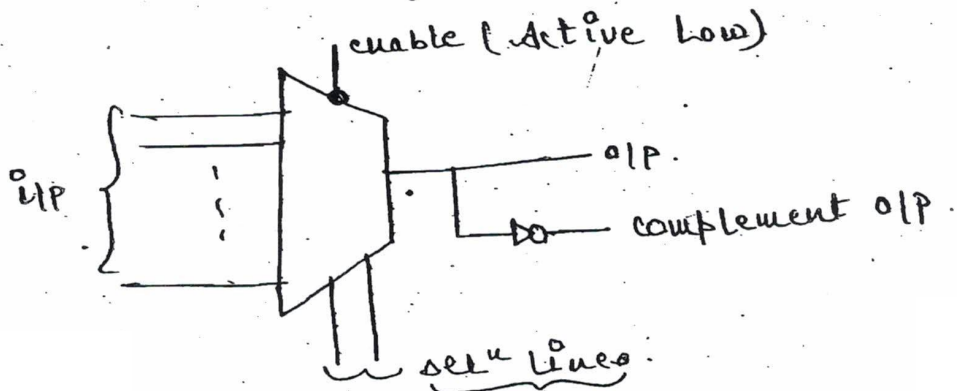 enable (Active Low)
i/p
o/p.
complement o/p.
selⁿ lines.